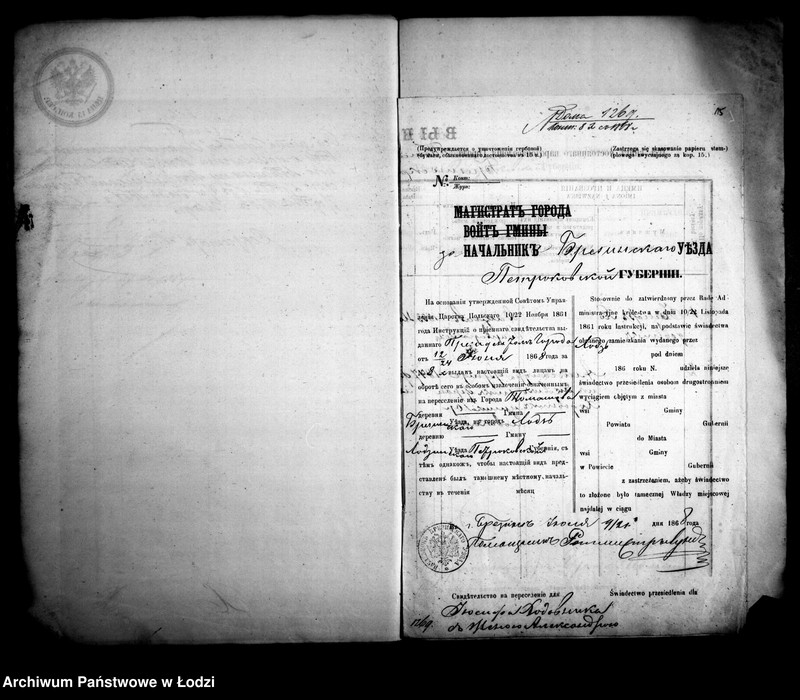 1269.
18
(Предупреждается о уничтожении гербовой
бумаги, обыкновеннаго достоинства к. 15 и.)
(Zastrzega się skasowanie papieru stem-
plowego zwyczajnego za kop. 15.)
№ Конт:
Журн:
МАГИСТРАТЪ ГОРОДА
ВОЙТЪ ГМИНЫ
НАЧАЛЬНИКЪ Брезинскаго УѢЗДА
Петроковской ГУБЕРНІИ.
На основаніи утвержденной Совѣтомъ Упра-
вленія Царства Польскаго 10/22 Ноября 1861
года Инструкціи о пріемнаго свидѣтельства вы-
даннаго Президентомъ Города Лодзь
отъ 12/24 Іюня 1868 года за
№ выданъ настоящій видъ лицамъ на
оборотѣ сего въ особомъ извлеченіи означеннымъ
на переселеніе изъ Города Томашова
деревни Гмина
Брезинскаго Уѣзда, въ городъ Лодзь
деревню Гмину
Лодзинскаго Уѣзда Петроковской Губерніи, съ
тѣмъ однакожъ, чтобы настоящій видъ пред-
ставленъ былъ тамошнему мѣстному, началь-
ству въ теченіи мѣсяц
Stosownie do zatwierdzonej przez Radę Ad-
ministracyjną królestwa w dniu 10/22 Listopada
1861 roku Instrukcji, na podstawie świadectwa
obranego zamieszkania wydanego przez
pod dniem
186 roku N. udziela niniejsze
świadectwo przesiedlenia osobom drugostronnem
wyciągiem objętym z miasta
wsi Gminy
Powiatu Gubernii
do Miasta
wsi Gminy
w Powiecie Gubernii
z zastrzeżeniem, ażeby świadectwo
to złożone było tamecznej Władzy miejscowej
najdalej w ciągu
г. Брезины Іюля 9/21 дня 1868 года
Помощникъ
Свидѣтельство на переселеніе для
Świadectwo przesiedlenia dla
Іосифа
1269. съ женою Александрою
Archiwum Państwowe w Łodzi